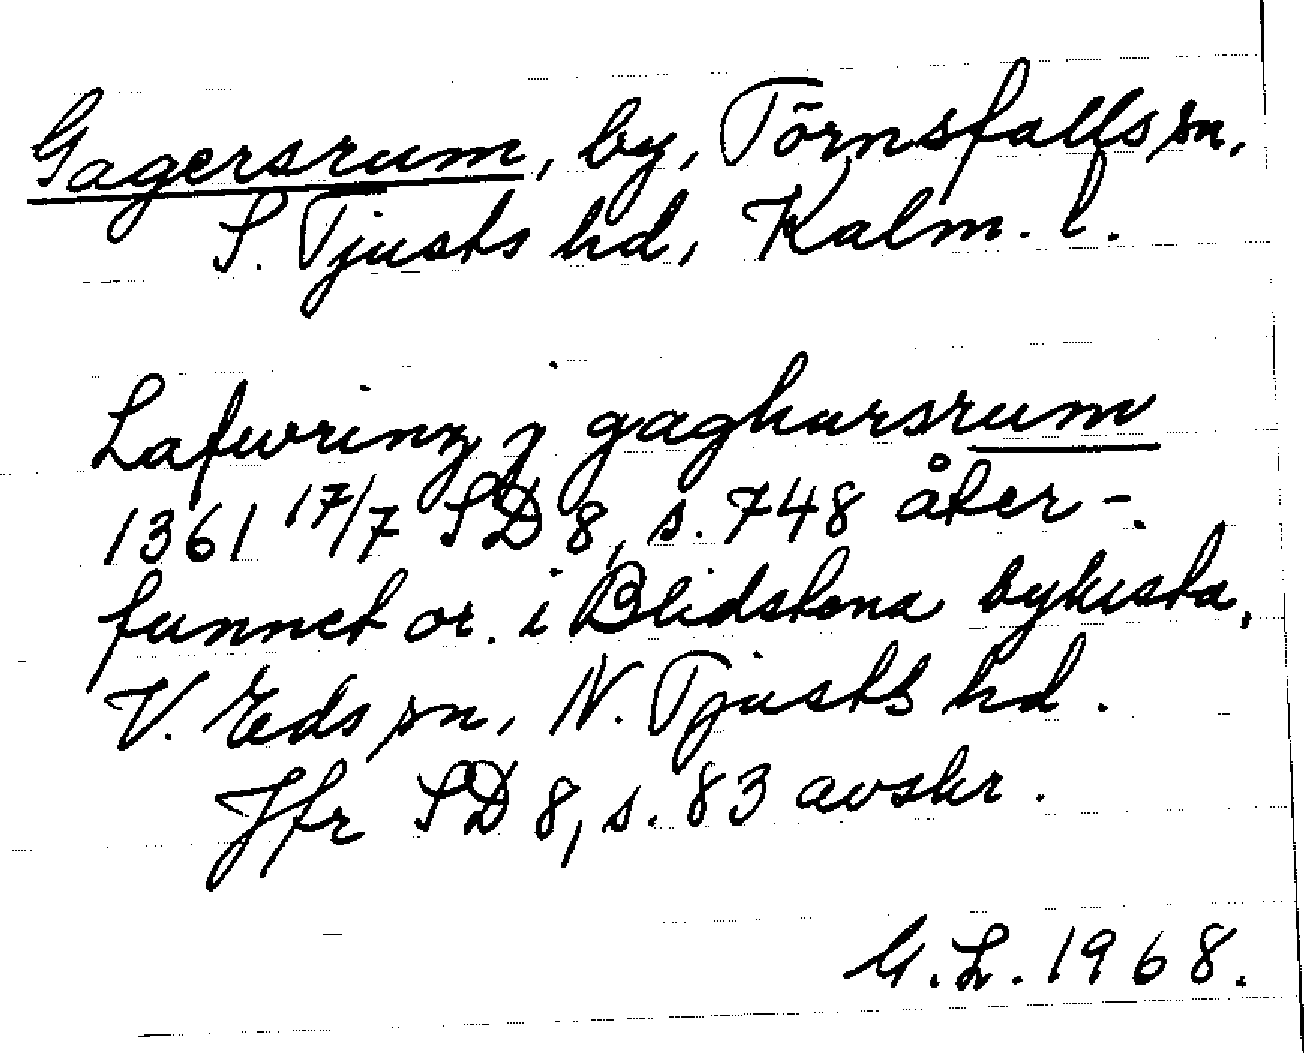 Gagersrum, by, Törnsfalls sn,
S. Tjusts hd, Kalm. l.
Lafwrinz j gaghursrum
1361 17/7 SD 8, s. 748 åter-
funnet or. i Blidstena bykista,
V. Eds sn, N. Tjusts hd.
Jfr SD 8, s. 83 avskr.
G.L. 1968.